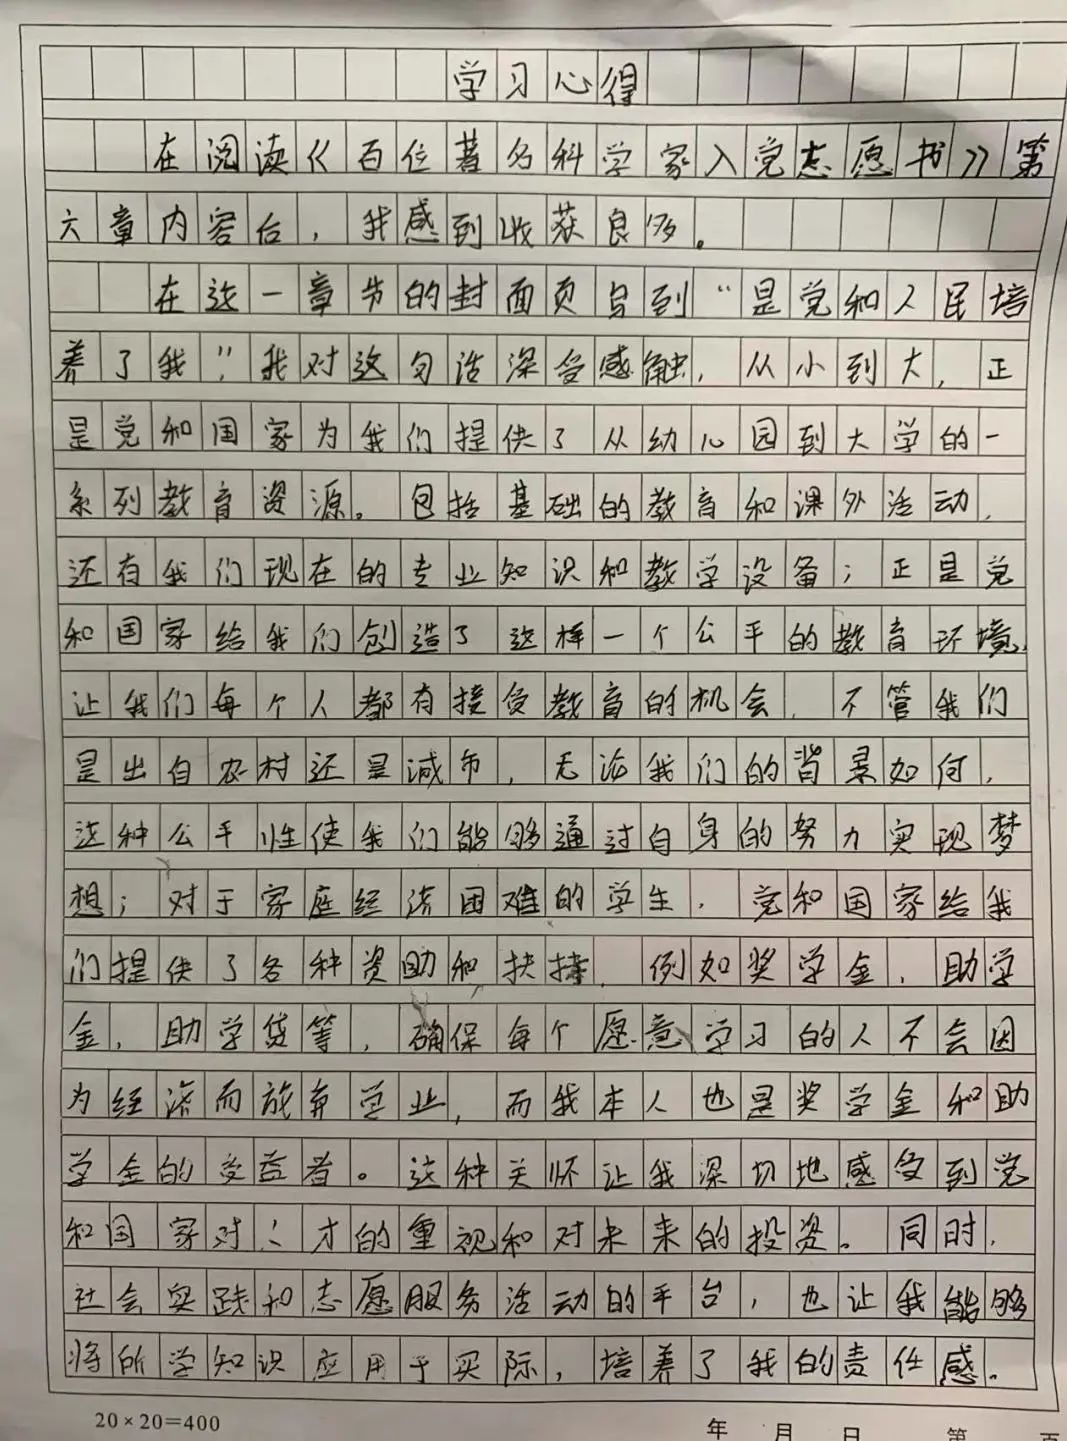 学习心得
在阅读《百位著名科学家入党志愿书》第
六章内容后，我感到收获良多。
在这一章节的封面页写到“是党和人民培
养了我”，我对这句话深受感触，从小到大，正
是党和国家为我们提供了从幼儿园到大学的一
系列教育资源。包括基础的教育和课外活动，
还有我们现在的专业知识和教学设备；正是党
和国家给我们创造了这样一个公平的教育环境，
让我们每个人都有接受教育的机会，不管我们
是出自农村还是城市，无论我们的背景如何，
这种公平性使我们能够通过自身的努力实现梦
想；对于家庭经济困难的学生，党和国家给我
们提供了各种资助和扶持，例如奖学金，助学
金，助学贷等，确保每个愿意学习的人不会因
为经济而放弃学业，而我本人也是奖学金和助
学金的受益者。这种关怀让我深切地感受到党
和国家对人才的重视和对未来的投资。同时，
社会实践和志愿服务活动的平台，也让我能够
将所学知识应用于实际，培养了我的责任感。
20×20=400
年 月 日 第 页